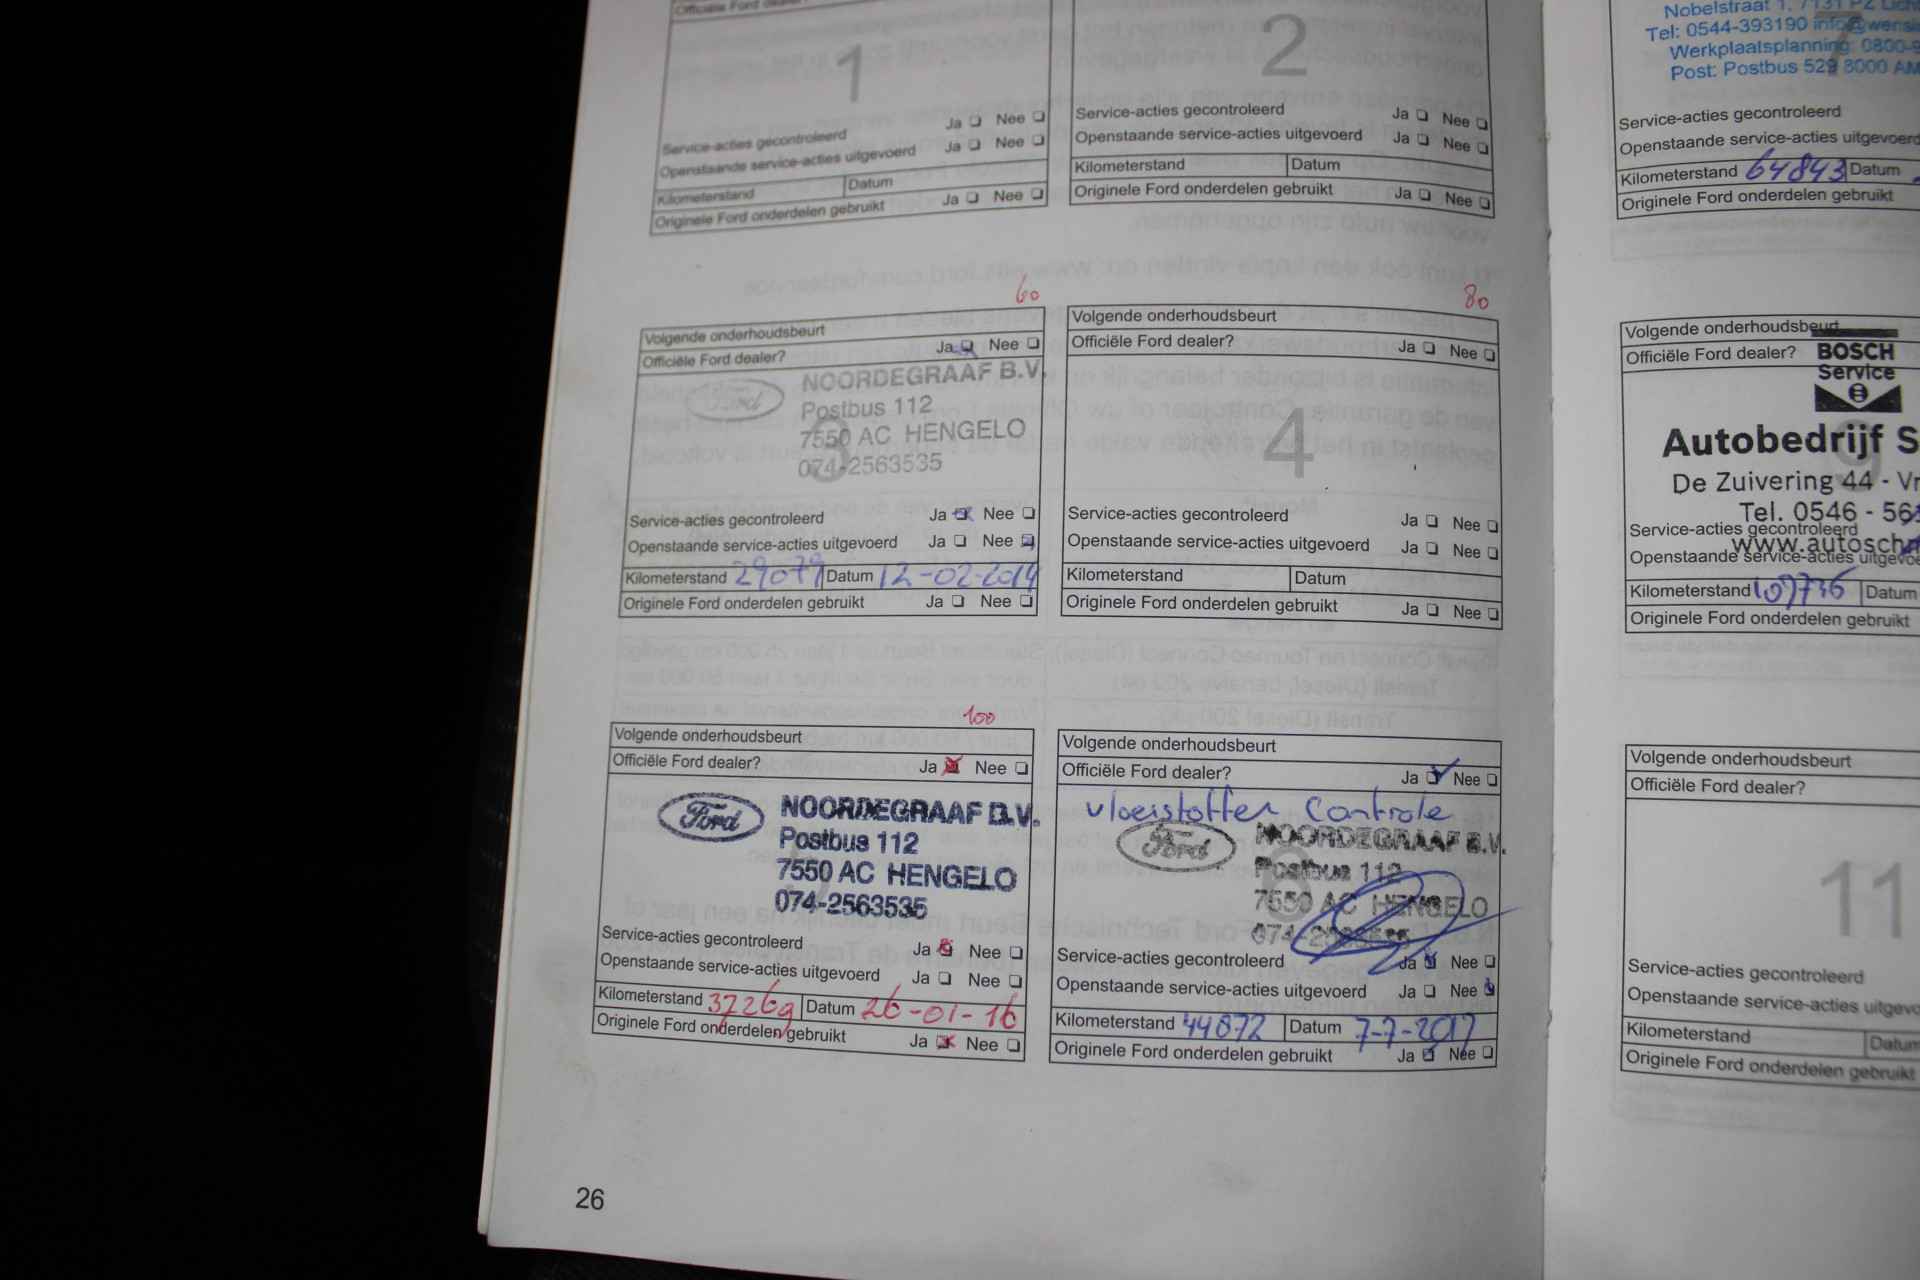 Officiële Ford dealer?
1
Service-acties gecontroleerd Ja Nee
Openstaande service-acties uitgevoerd Ja Nee
Kilometerstand Datum
Originele Ford onderdelen gebruikt Ja Nee
2
Service-acties gecontroleerd Ja Nee
Openstaande service-acties uitgevoerd Ja Nee
Kilometerstand Datum
Originele Ford onderdelen gebruikt Ja Nee
60
Volgende onderhoudsbeurt
Officiële Ford dealer? Ja Nee
Ford
NOORDEGRAAF B.V.
Postbus 112
7550 AC HENGELO
074-2563535
3
Service-acties gecontroleerd Ja Nee
Openstaande service-acties uitgevoerd Ja Nee
Kilometerstand 29079 Datum 12-02-2014
Originele Ford onderdelen gebruikt Ja Nee
80
Volgende onderhoudsbeurt
Officiële Ford dealer? Ja Nee
4
Service-acties gecontroleerd Ja Nee
Openstaande service-acties uitgevoerd Ja Nee
Kilometerstand Datum
Originele Ford onderdelen gebruikt Ja Nee
100
Volgende onderhoudsbeurt
Officiële Ford dealer? Ja Nee
Ford
NOORDEGRAAF B.V.
Postbus 112
7550 AC HENGELO
074-2563535
Service-acties gecontroleerd Ja Nee
Openstaande service-acties uitgevoerd Ja Nee
Kilometerstand 37269 Datum 26-01-16
Originele Ford onderdelen gebruikt Ja Nee
Volgende onderhoudsbeurt
Officiële Ford dealer? Ja Nee
vloeistoffen Controle
Ford
NOORDEGRAAF B.V.
Postbus 112
7550 AC HENGELO
074-2563535
6
Service-acties gecontroleerd Ja Nee
Openstaande service-acties uitgevoerd Ja Nee
Kilometerstand 44872 Datum 7-7-2017
Originele Ford onderdelen gebruikt Ja Nee
26
Nobelstraat 1, 7131 PZ
Tel: 0544-393190
Werkplaatsplanning: 0800-
Post: Postbus 529 8000 AM
7
Service-acties gecontroleerd
Openstaande service-acties
Kilometerstand 64843 Datum
Originele Ford onderdelen gebruikt
Volgende onderhoudsbeurt
Officiële Ford dealer?
BOSCH
Service
Autobedrijf S
9
De Zuivering 44 - Vr
Tel. 0546 - 56
Service-acties gecontroleerd
www.autosch
Openstaande service-acties
Kilometerstand 109736 Datum
Originele Ford onderdelen gebruikt
Volgende onderhoudsbeurt
Officiële Ford dealer?
11
Service-acties gecontroleerd
Openstaande service-acties
Kilometerstand Datum
Originele Ford onderdelen gebruikt